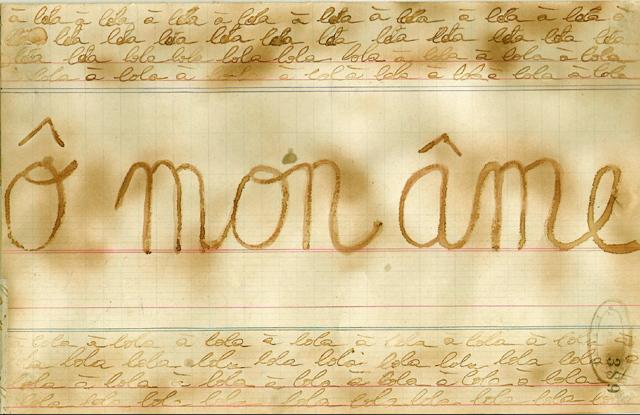 à lola à lola à lola à lola à lola à lola à lola à lola à
lola lola lola lola lola lola lola lola lola lola lola
lola lola lola lola lola lola lola lola lola lola
lola à lola à à lola à lola à lola à lola à lola
Ô mon âme
lola à lola à lola à lola à lola à lola à lola
lola lola lola lola lola lola lola lola lola
lola à lola à lola à lola à lola à lola à lola
lola lola lola lola lola lola lola lola
389